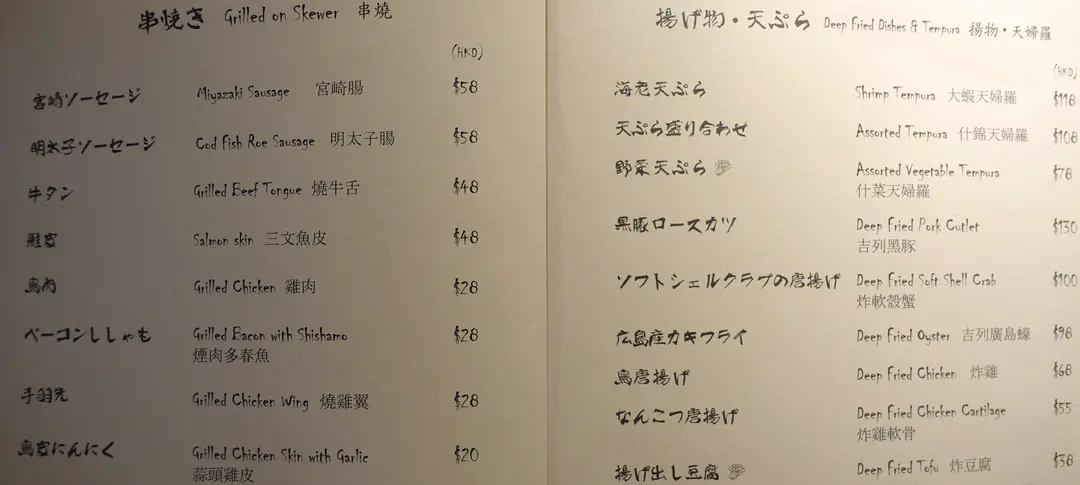 串焼き Grilled on Skewer 串燒
(HKD)
宮崎ソーセージ Miyazaki Sausage 宮崎腸 $58
明太子ソーセージ Cod Fish Roe Sausage 明太子腸 $58
牛タン Grilled Beef Tongue 燒牛舌 $48
鮭皮 Salmon skin 三文魚皮 $48
鳥肉 Grilled Chicken 雞肉 $28
ベーコンししゃも Grilled Bacon with Shishamo $28
煙肉多春魚
手羽先 Grilled Chicken Wing 燒雞翼 $28
鳥皮にんにく Grilled Chicken Skin with Garlic $20
蒜頭雞皮
揚げ物・天ぷら Deep Fried Dishes & Tempura 揚物・天婦羅
(HKD)
海老天ぷら Shrimp Tempura 大蝦天婦羅 $118
天ぷら盛り合わせ Assorted Tempura 什錦天婦羅 $108
野菜天ぷら Assorted Vegetable Tempura $78
什菜天婦羅
黒豚ロースカツ Deep Fried Pork Cutlet $130
吉列黑豚
ソフトシェルクラブの唐揚げ Deep Fried Soft Shell Crab $100
炸軟殼蟹
広島産カキフライ Deep Fried Oyster 吉列廣島蠔 $98
鳥唐揚げ Deep Fried Chicken 炸雞 $68
なんこつ唐揚げ Deep Fried Chicken Cartilage $55
炸雞軟骨
揚げ出し豆腐 Deep Fried Tofu 炸豆腐 $38